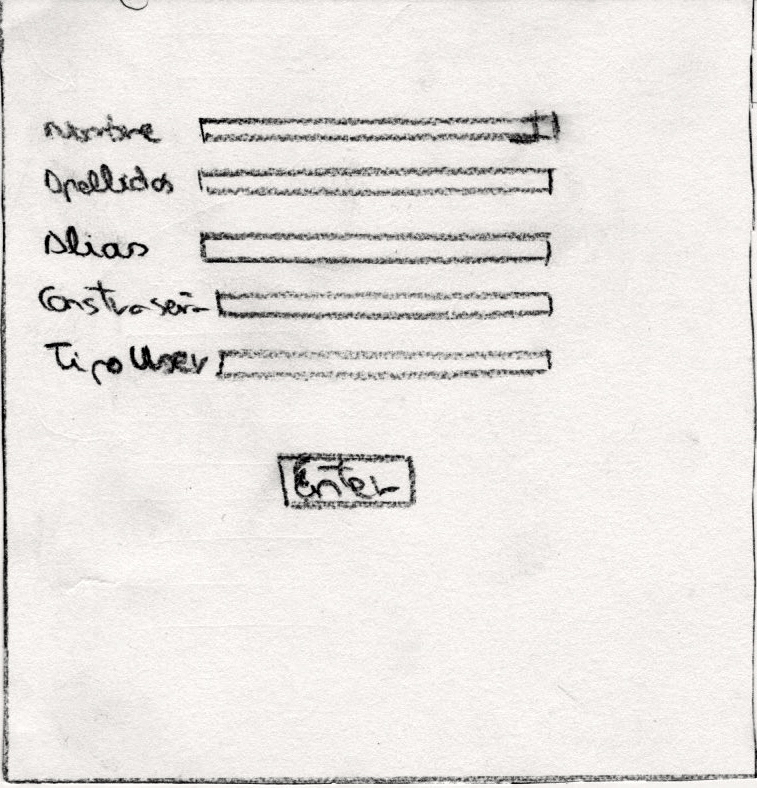 Nombre
Apellidos
Alias
Constraseña
Tipo User
Enter